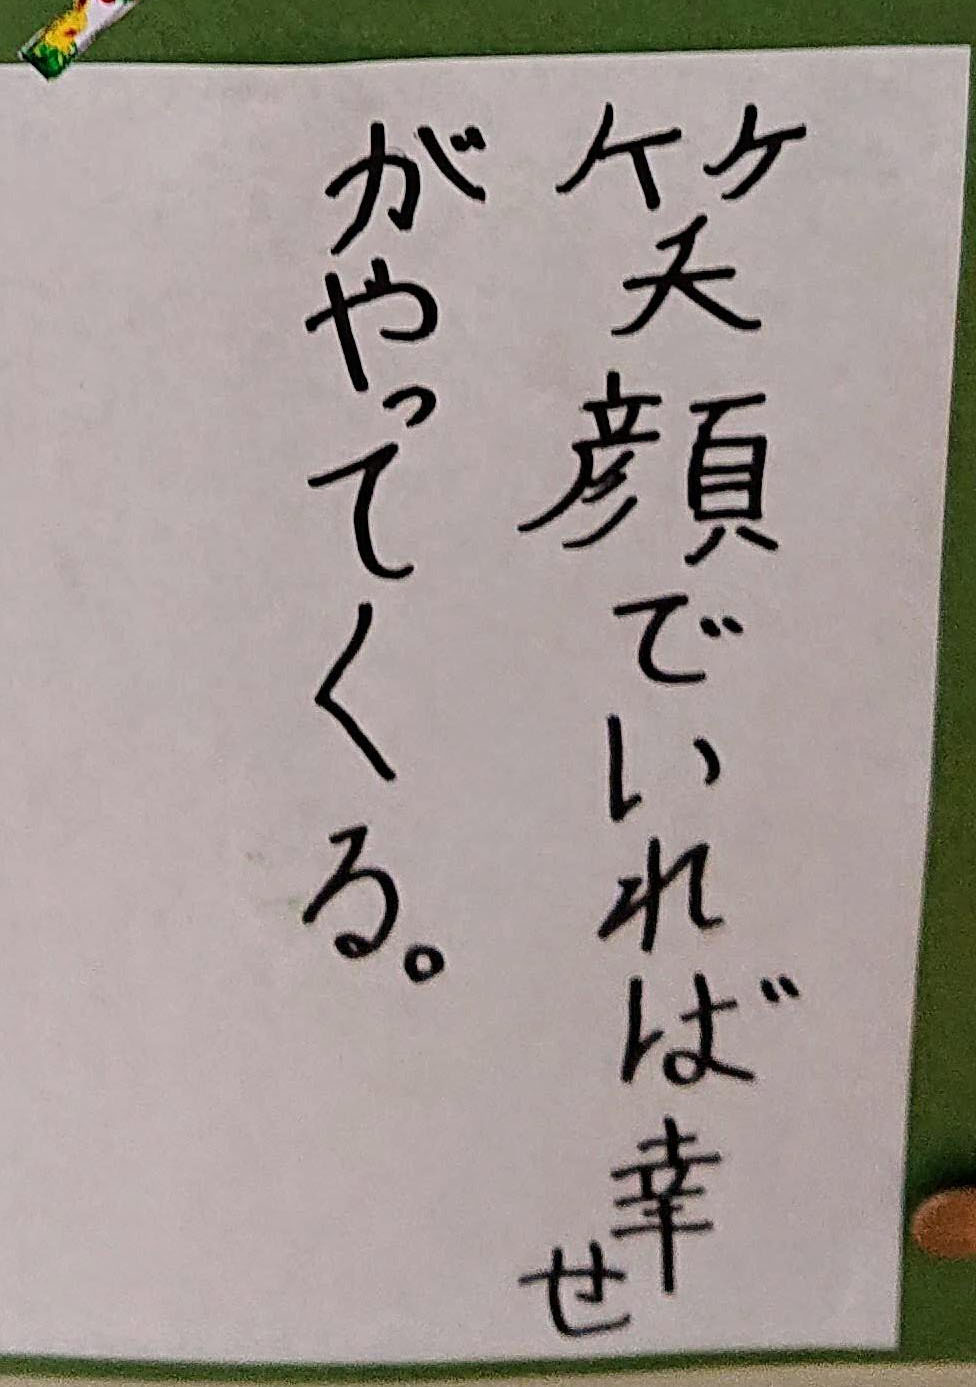 笑顔でいれば幸せ
がやってくる。